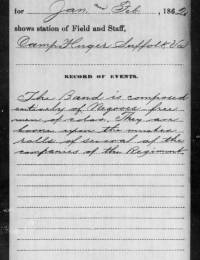 for Jan – Feb , 1862
shows station of Field and Staff,
Camp Huger Suffolk Va
RECORD OF EVENTS.
The Band is composed
entirely of Negroes free
men of color. They are
borne upon the muster
rolls of several of the
companies of this Regiment